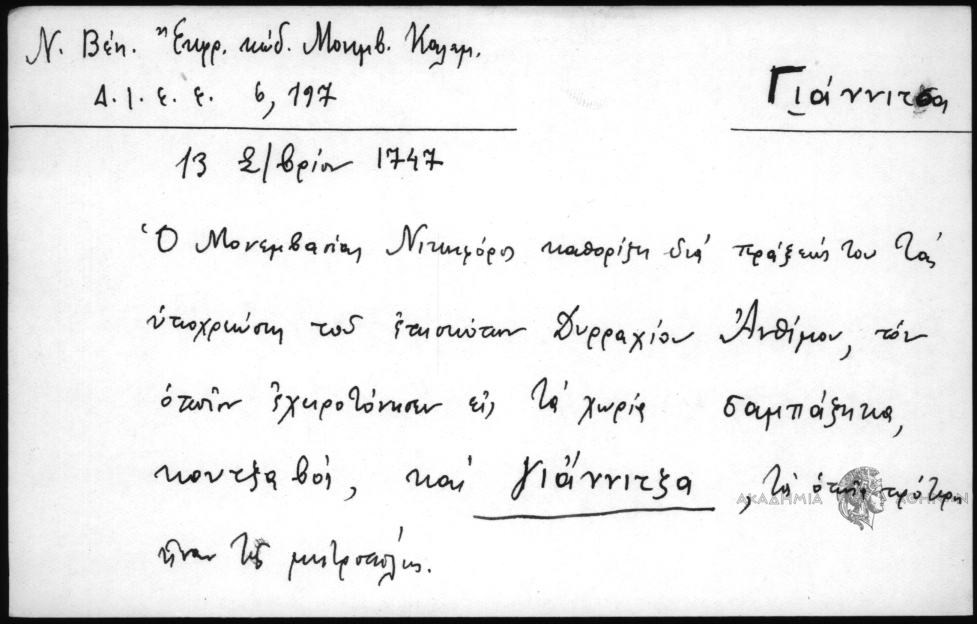 Ν. Βέη. Ἔκφρ. κώδ. Μονμβ. Καλαμ.
Δ. Ι. ε. ε. 6, 197
Γιάννιτσα
13 Σ/βρίου 1747
Ὁ Μονεμβασίας Νικηφόρος καθορίζη διά πράξεώς του τάς
ὑποχρεώσεις τοῦ ἐπισκόπου Δυρραχίου Ἀνθίμου, τόν
ὁποῖον ἐχειροτόνησεν εἰς τά χωρία σαμπάζηκα,
κουτζαβοί, καί γιάννιτζα, τά ὁποῖα πρότερον
ἦσαν τῆς μητροπόλεως.
ΑΚΑΔΗΜΙΑ ΑΘΗΝΩΝ